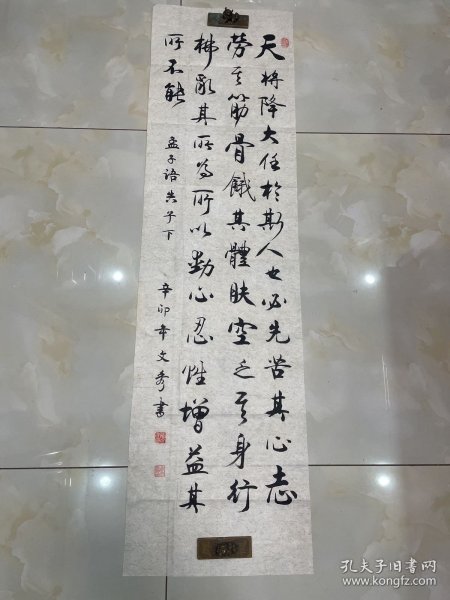 天将降大任於斯人也必先苦其心志
劳其筋骨饿其體肤空乏其身行
拂乱其所为所以動心忍性增益其
所不能
孟子语告子下
辛卯年文秀書
孔夫子旧书网
www.kongfz.com